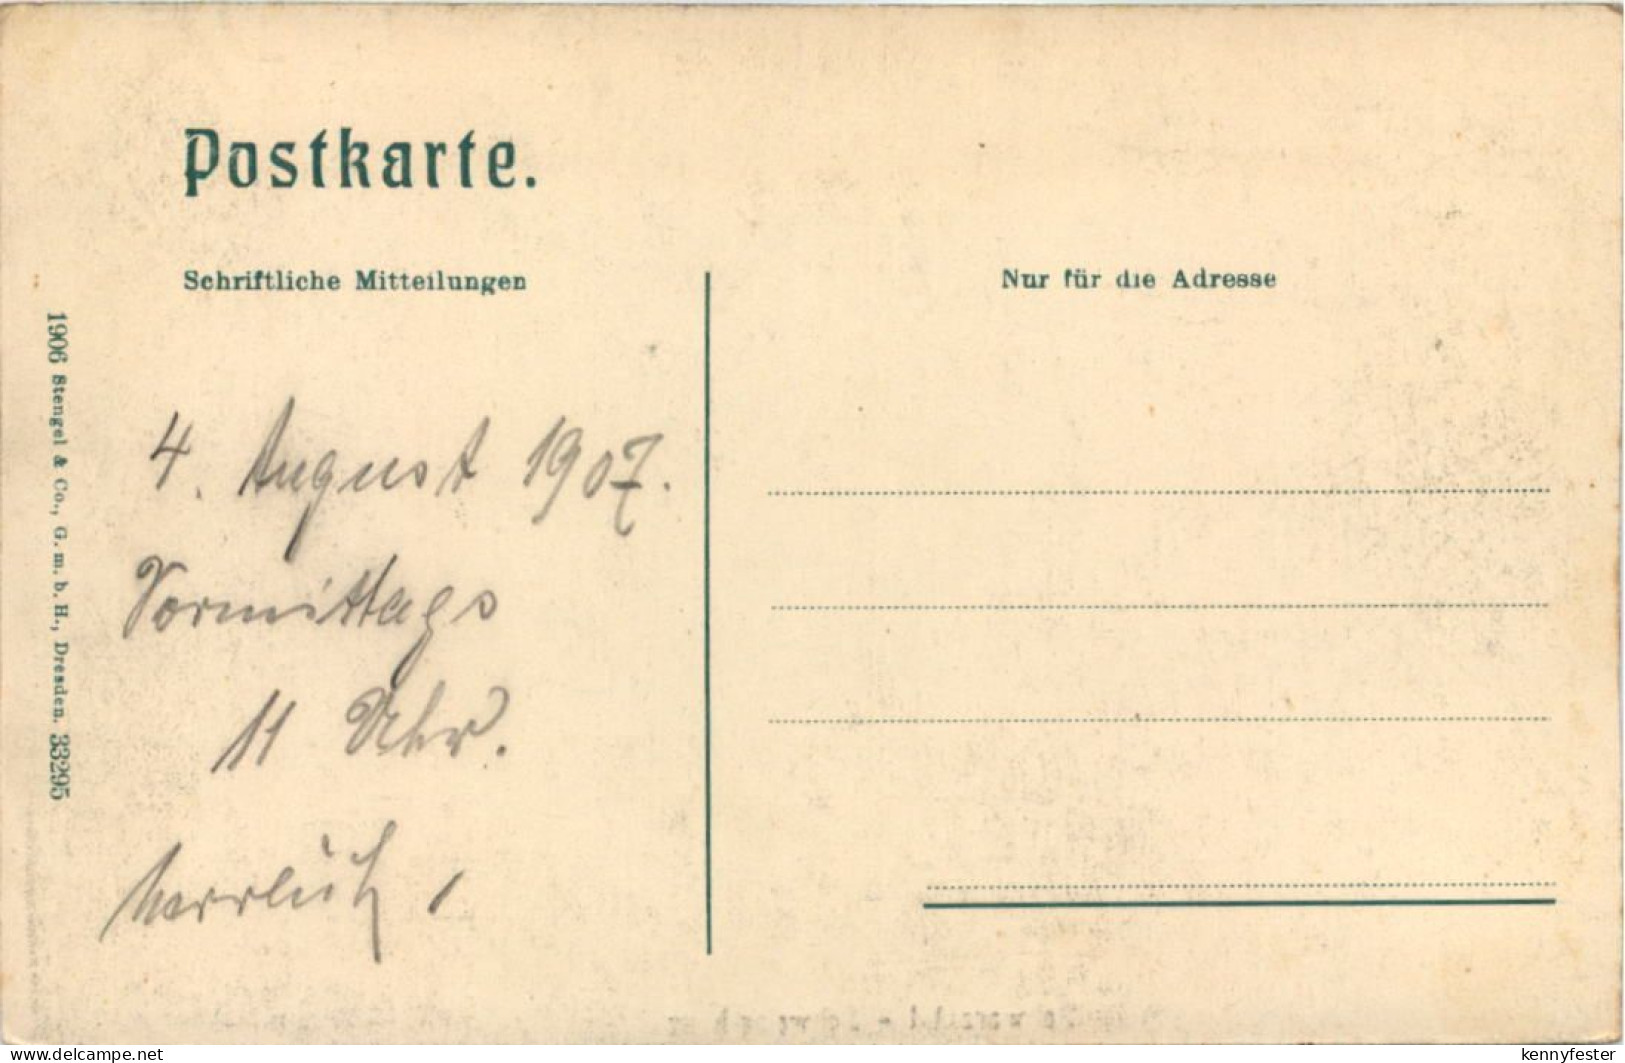 Postkarte.
Schriftliche Mitteilungen
Nur für die Adresse
1906 Stengel & Co., G. m. b. H., Dresden. 33295
4. August 1907.
Vormittags
11 Uhr.
herrlich!
delcampe.net
kennyfester